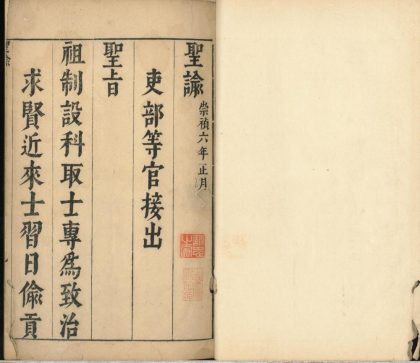 聖諭 崇禎六年正月
吏部等官接出
聖旨
祖制設科取士專爲致治
求賢近來士習日偷貢
聖諭